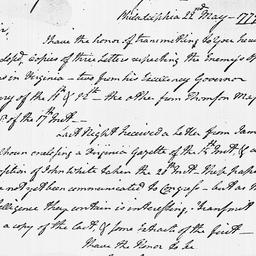 Philadelphia 22nd May 177
Sir,
I have the honor of transmitting to you here
closed, copies of three Letters respecting the Enemy's M
s in Virginia – two from his Excellency Governor
of the & 12th – the other from Thomson
of the 17th Inst –
Last Night I received a letter from Jam
houn enclosing a Virginia Gazette of the 15th Inst, & a
ption of John White taken the 20th Inst – These pap
e not yet been communicated to Congress – but as
telligence they contain is interesting, I transmit
a copy of the last, & some Extracts of the first –
I have the Honor to be